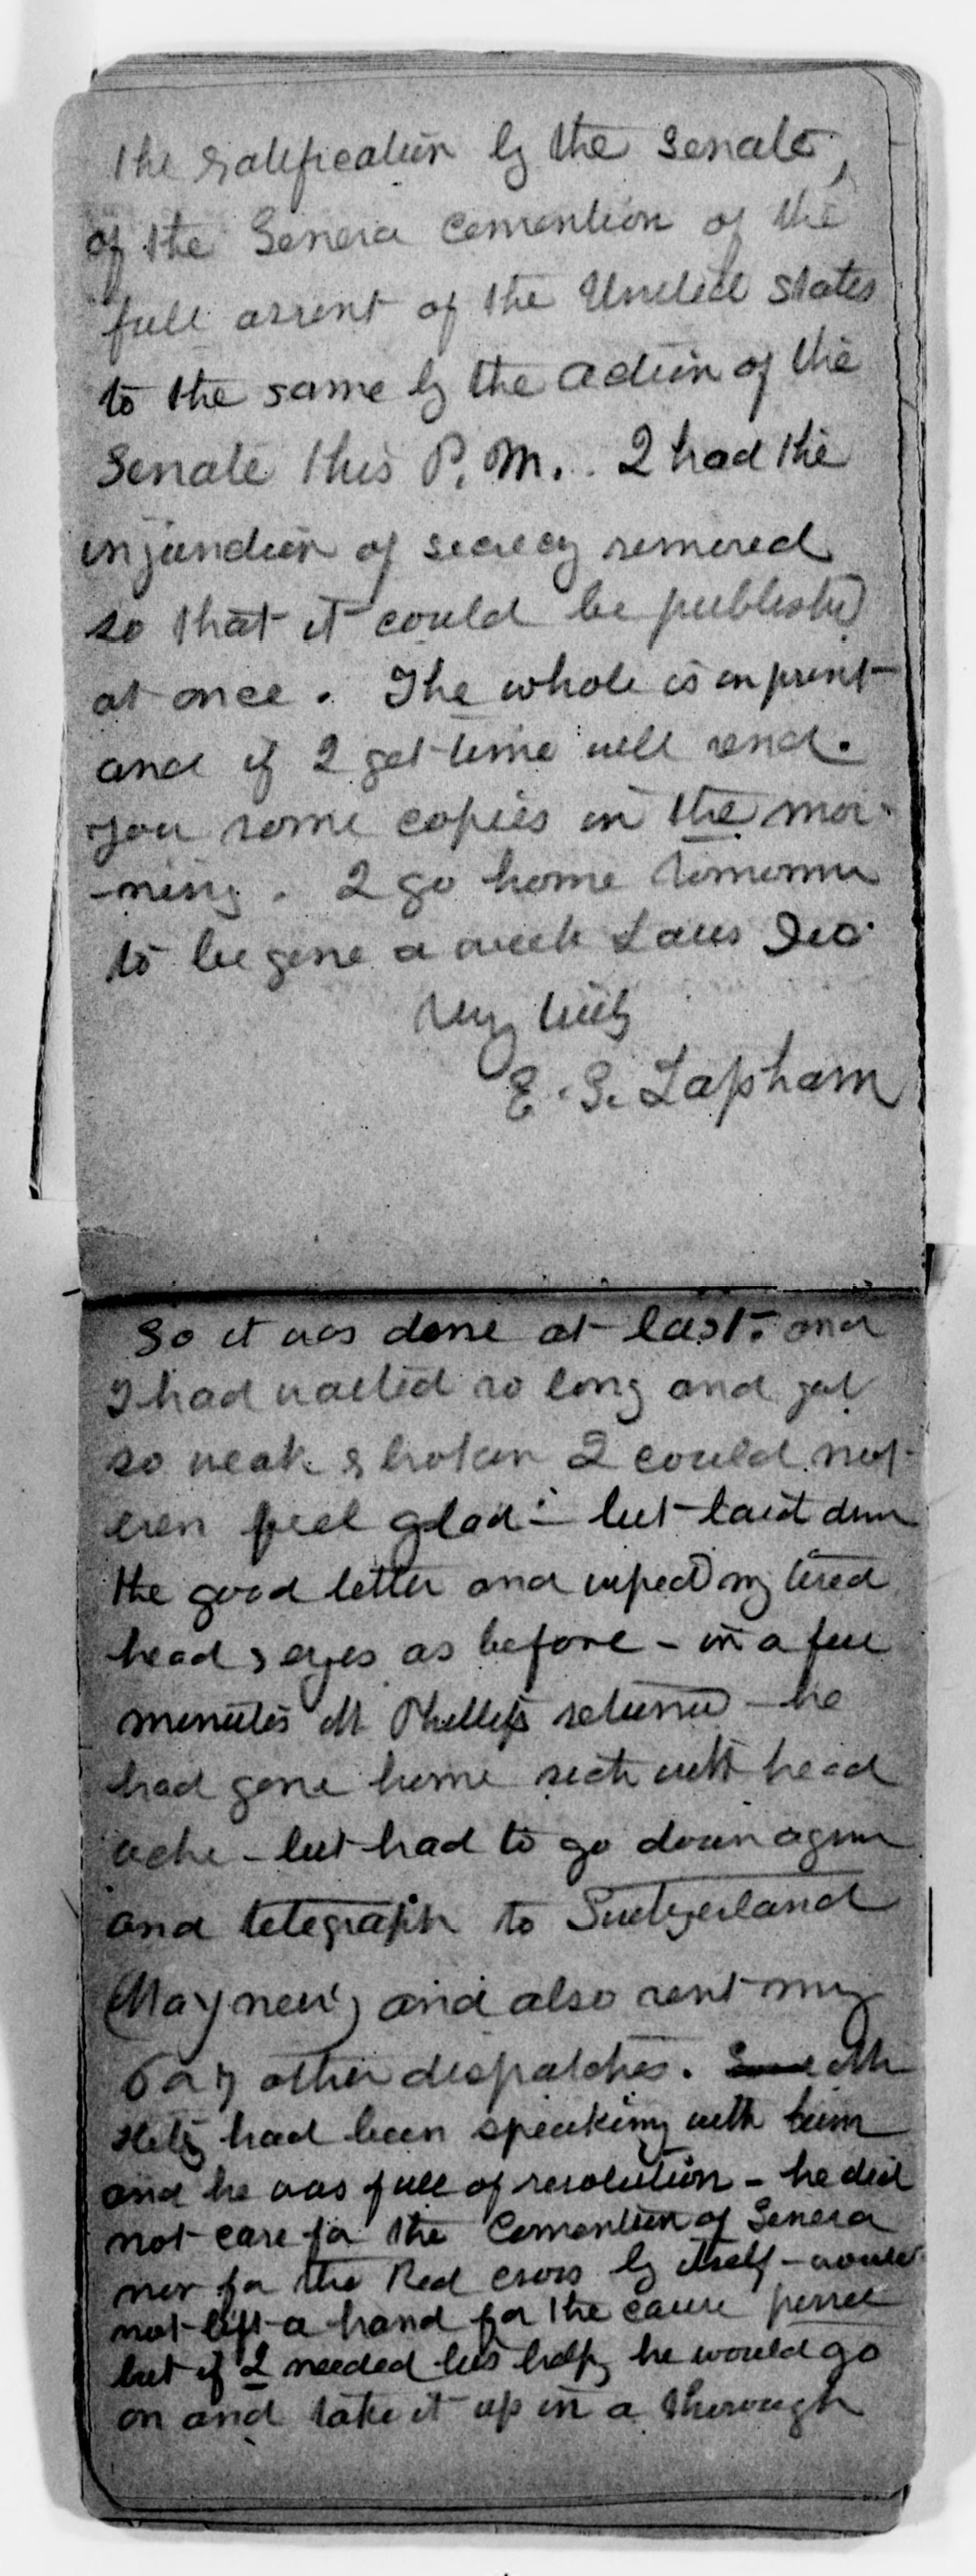 the ratification by the Senate,
of the Geneva Convention of the
full assent of the United States
to the same by the action of the
Senate this P. M.. I had the
injunction of secrecy removed
so that it could be published
at once. The whole is in print
and if I get time will send.
you some copies in the mor-
-ning. I go home tomorrow
to be gone a week Laus Deo
Very truly
E. G. Lapham
So it was done at last. and
I had waited so long and got
so weak & broken I could not
even feel glad - but laid down
the good letter and wiped my tired
head & eyes as before - in a few
minutes Mr Phillips returned - he
had gone home sick with head
ache - but had to go down again
and telegraph to Switzerland
and also sent my
6 or 7 other dispatches. Mr
had been speaking with him
and he was full of resolution - he did
not care for the Convention of Geneva
nor for the Red cross by itself - would
not lift a hand for the cause per se
but if I needed his help, he would go
on and take it up in a thorough